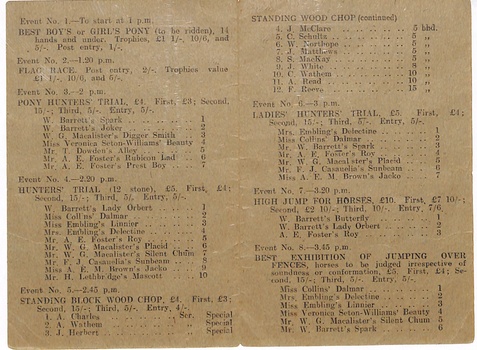 Event No. 1.—To start at 1 p.m.
BEST BOY'S or GIRL'S PONY (to be ridden), 14
hands and under. Trophies, £1 1/-, 10/6, and
5/-. Post entry, 1/-.
Event No. 2.—1.20 p.m.
FLAG RACE. Post entry, 2/-. Trophies value
£1 1/-, 10/6, and 5/-.
Event No. 3.—2 p.m.
PONY HUNTERS' TRIAL, £4. First, £3; Second,
15/-; Third, 5/-. Entry, 5/-.
W. Barrett's Spark 1
W. Barrett's Joker 2
W. G. Macalister's Digger Smith 3
Miss Veronica Seton-Williams' Beauty 4
Mr. T. Dowden's Alley 5
Mr. A. E. Foster's Rubican Lad 6
Mr. A. E. Foster's Prest Boy 7
Event No. 4.—2.20 p.m.
HUNTERS' TRIAL (12 stone), £5. First, £4;
Second, 15/-; Third, 5/. Entry, 5/-.
W. Barrett's Lady Orbert 1
Miss Collins' Dalmar 2
Miss Embling's Linnier 3
Mrs. Embling's Delectine 4
Mr. A. E. Foster's Roy 5
Mr. W. G. Macalister's Placid 6
Mr. W. G. Macalister's Silent Chum 7
Mr. F. J. Casauelia's Sunbeam 8
Miss A. E. M. Brown's Jacko 9
Mr. H. Lethbridge's Mascott 10
Event No. 5.—2.45 p.m.
STANDING BLOCK WOOD CHOP, £4. First, £3;
Second, 15/-; Third, 5/-. Entry, 4/-.
1. A. Charles Scr. Special
2. A. Wathem „ Special
3. J. Herbert „ Special
STANDING WOOD CHOP (continued)
4. J. McClare 5 bhd.
5. C. Schultz 5 „
6. W. Northope 5 „
7. J. Matthews 5 „
8. S. MacKay 5 „
9. J. White 8 „
10. C. Wathem 10 „
11. A. Read 10 „
12. F. Reeve 15 „
Event No. 6.—3 p.m.
LADIES' HUNTERS' TRIAL, £5. First, £4;
Second, 15/-; Third, 5/-. Entry, 5/-.
Mrs. Embling's Delectine 1
Miss Collins' Dalmar 2
Mr. W. Barrett's Spark 3
Mr. A. E. Foster's Roy 4
Mr. W. G. Macalister's Placid 5
Mr. F. J. Casauelia's Sunbeam 6
Miss A. E. M. Brown's Jacko 7
Event No. 7.—3.20 p.m.
HIGH JUMP FOR HORSES, £10. First, £7 10/-;
Second, £2 10/-; Third, 10/-. Entry, 7/6.
W. Barrett's Butterfly 1
W. Barrett's Lady Orbert 2
A. E. Foster's Roy 3
Event No. 8.—3.45 p.m.
BEST EXHIBITION OF JUMPING OVER
FENCES, horses to be judged irrespective of
soundness or conformation, £5. First, £4; Se-
cond, 15/-; Third, 5/-. Entry, 5/-.
Miss Collins' Dalmar 1
Mrs. Embling's Delectine 2
Miss Embling's Linnier 3
Miss Veronica Seton-Williams' Beauty 4
Mr. W. G. Macalister's Silent Chum 5
Mr. W. Barrett's Spark 6